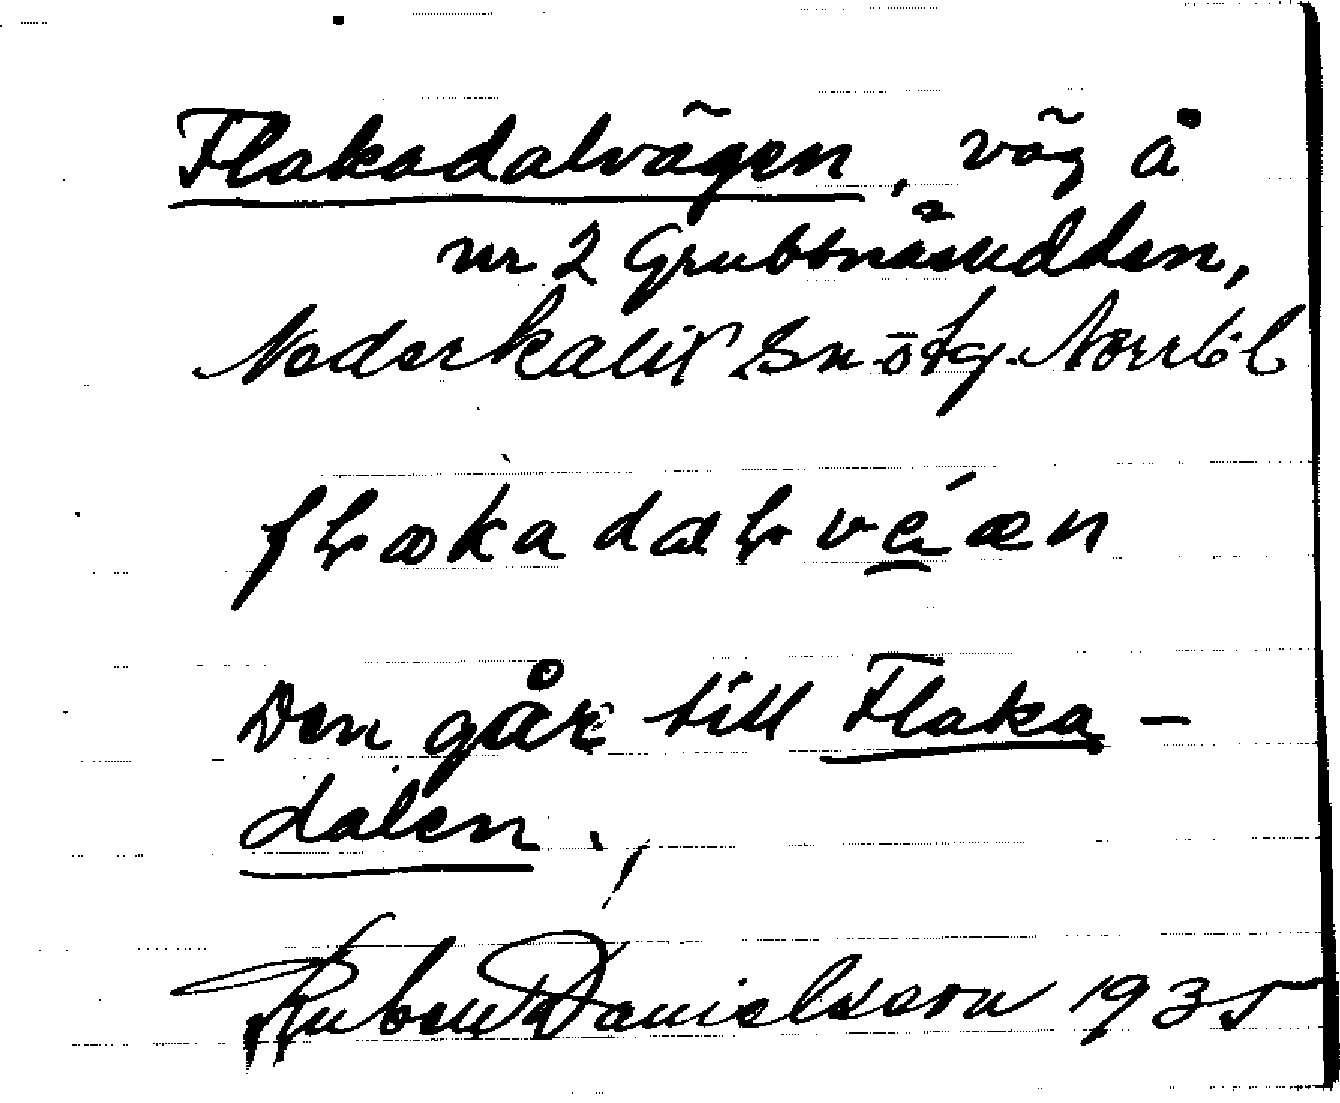 Flakadalvägen, väg å
nr 2 Grubbnäsudden,
Nederkalix sn ö tg. Norrb. l
flakadalvéæn
Den går till Flaka-
dalen.
Ruben Danielsson 1935